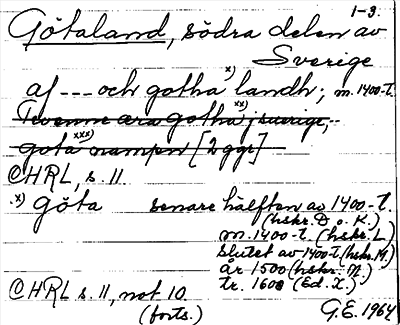 1-3.
Götaland, södra delen av
Sverige
af --- och gotha x) landh; m. 1400-t.
Twenne æra gotha xx) j suerige,-
gota xxx) nampn [2 ggr]
CHRL, s. 11.
x) göta senare hälften av 1400-t.
(hskr. D o. K.)
m. 1400-t. (hskr. L)
slutet av 1400-t (hskr. M.)
år 1500 (hskr. N.)
tr. 1608 (Ed. I.)
CHRL s. 11, not 10.
(forts.)
G.E. 1964